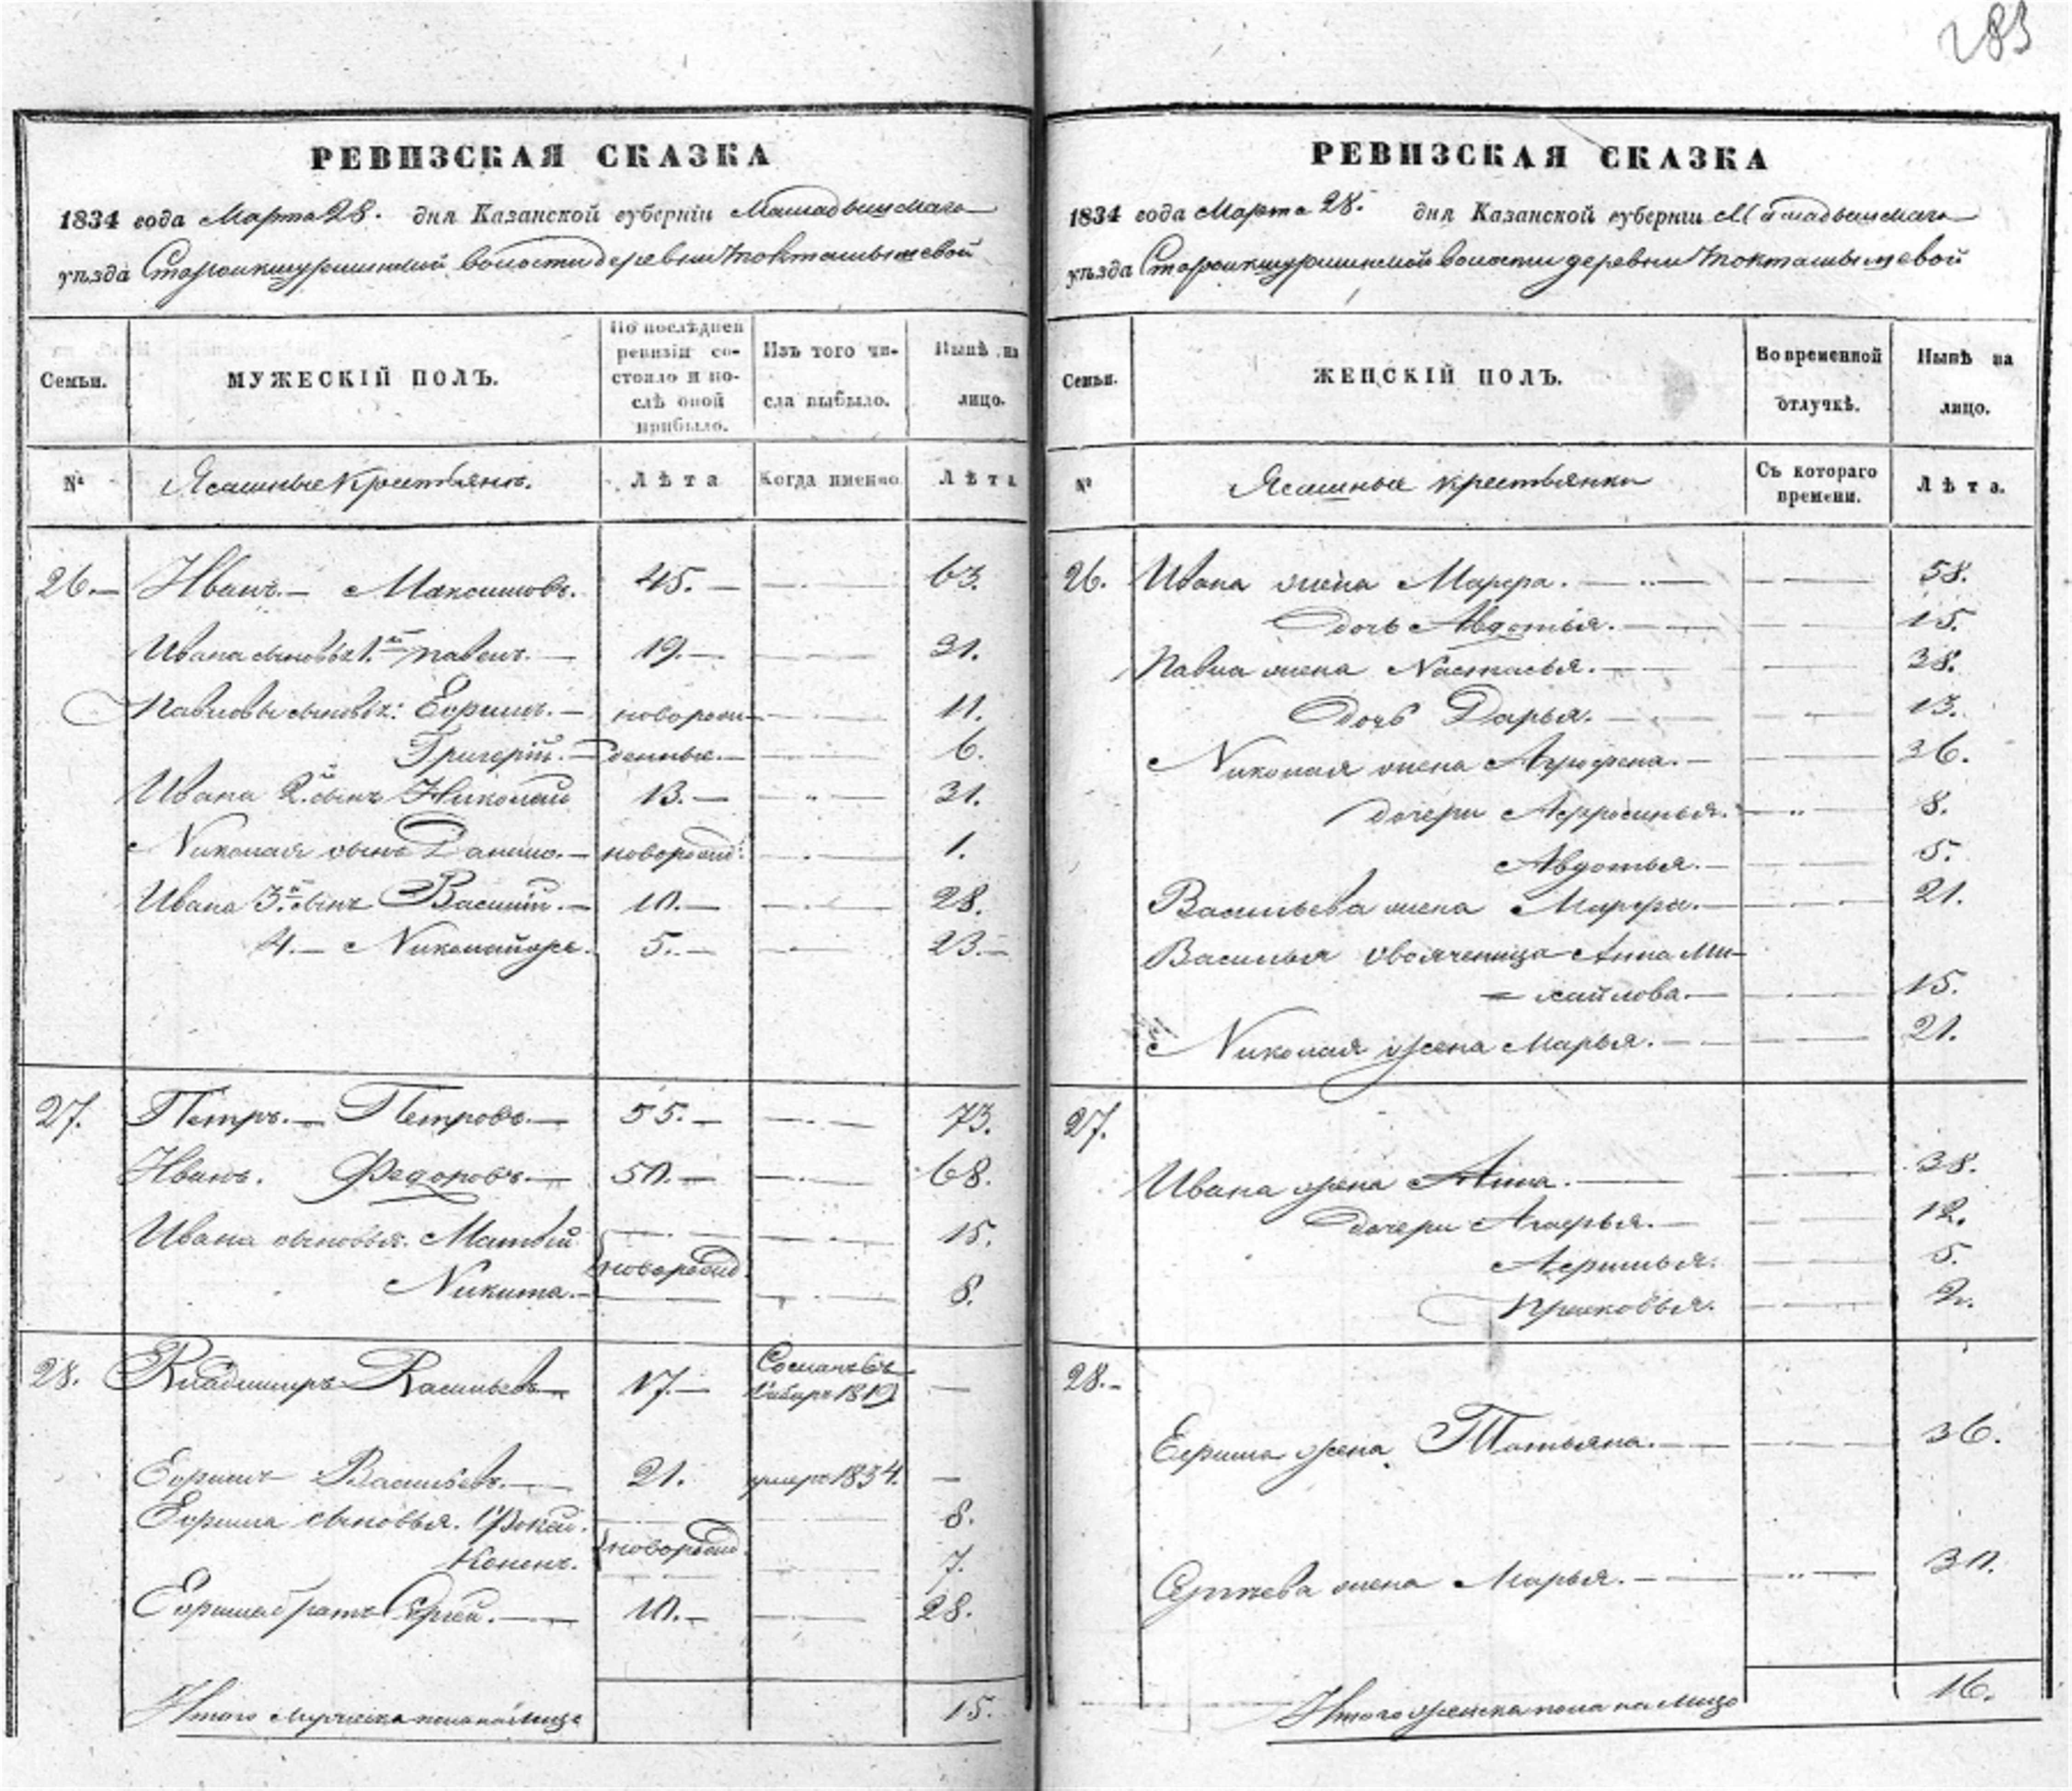 283
РЕВИЗСКАЯ СКАЗКА
1834 года Марта 28. дня Казанской губерніи Мамадышскаго
уѣзда волости деревни
Семьи.
МУЖЕСКІЙ ПОЛЪ.
По послѣдней ревизіи состояло и послѣ оной прибыло.
Изъ того числа выбыло.
Нынѣ на лицо.
№
Ясашные Крестьяне.
Лѣта
Когда именно
Лѣта
26.— Иванъ.— Максимовъ. 45.— 63.
Ивана сыновья 1.й Павелъ.— 19.— 31.
Павловы сыновья: Ефримъ.— новорож— 11.
Григерій.— денные.— 6.
Ивана 2.й сынъ Николай 13.— 31.
Николая сынъ Данило.— новорожд: 1.
Ивана 3.й сынъ Василій.— 10.— 28.
4.— Николайже. 5.— 23.—
27. Петръ.— Петровъ.— 55.— 73.
Иванъ. Федоровъ.— 50.— 68.
Ивана сыновья. Матвѣй 15.
новорожд.
Никита.— 8.
28. Владимиръ Васильевъ— 17.— Сосланъ въ
Сибирь 1819 —
Ефримъ Васильевъ.— 21. умеръ 1834. —
Ефрима сыновья. Фокай. 8.
новорожд.
Кононъ. 7.
Ефрима братъ Сергей.— 10.— 28.
Итого мужеска пола на лицо 15.
РЕВИЗСКАЯ СКАЗКА
1834 года Марта 28. дня Казанской губерніи Мамадышскаго
уѣзда волости деревни
Семьи.
ЖЕНСКІЙ ПОЛЪ.
Во временной отлучкѣ.
Нынѣ на лицо.
№
Ясашные крестьянки
Съ котораго времени.
Лѣта.
26. Ивана жена Марфа.— 58.
дочь Авдотья.— 15.
Павла жена Настасья.— 38.
дочь Дарья.— 13.
Николая жена Агрофена.— 36.
дочери Афросинья. 8.
Авдотья.— 5.
Васильева жена Марфа.— 21.
Василья свояченица Анна Ми—
= хайлова.— 15.
Николая жена Марья.— 21.
27.
Ивана жена Анна.— 38.
дочери 12.
5.
Прасковья. 2.
28.—
Ефрима жена Татьяна.— 36.
Сергѣева жена Марья.— 30.
Итого женска пола на лицо 16.